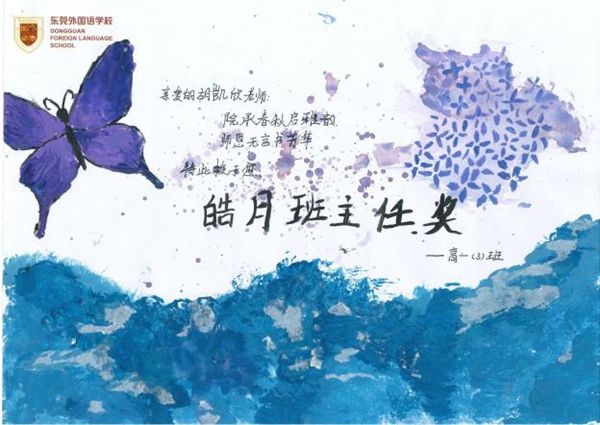 东莞外国语学校
DONGGUAN
FOREIGN LANGUAGE
SCHOOL
亲爱的胡凯欣老师：
院承春秋启雅韵
师恩无言书芳华
特此授予您
皓月班主任奖
——高一（3）班